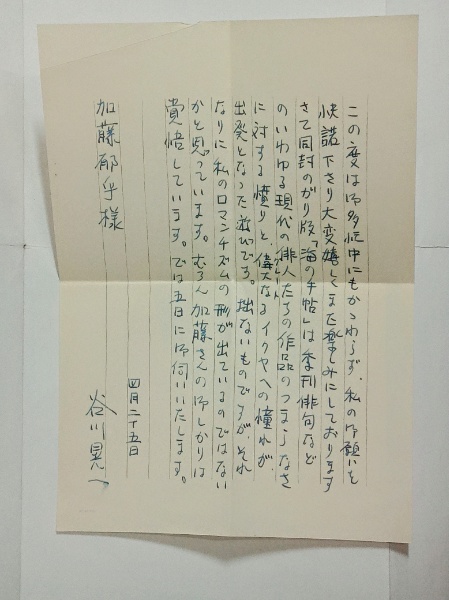 この度は御多忙中にもかゝわらず、私の御願いを
快諾下さり大変嬉しくまた楽しみにしております
さて同封のがり版「海の手帖」は季刊俳句など
のいわゆる現代の俳人たちの作品のつまらなさ
に対する憤りと、偉大なるイクヤへの憧れが、
出発となった遊びです。拙ないものですが、それ
なりに私のロマンチズムの形が出ているのではない
かと思っています。むろん加藤さんの御しかりは
覚悟しています。では五日に御伺いいたします。
四月二十五日
谷川晃一
加藤郁乎様